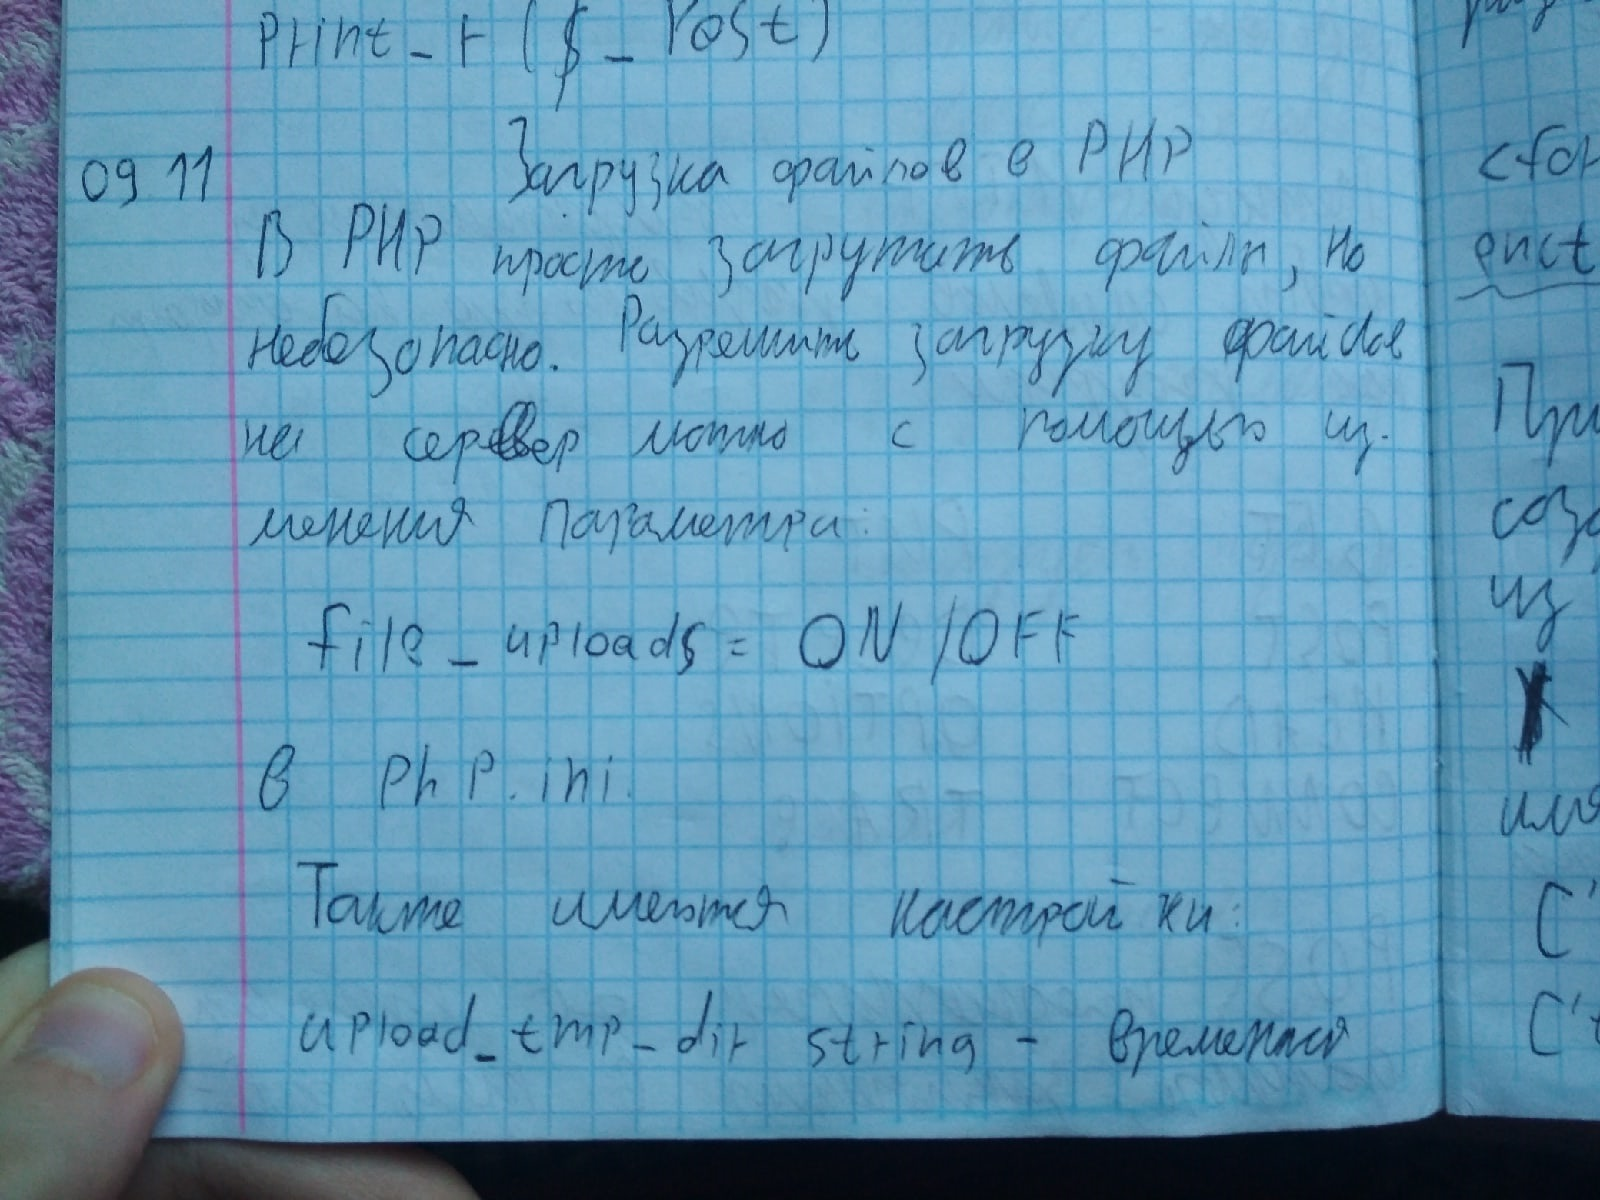 print_r($_Post)
09 11 Загрузка файлов в PHP
В PHP просто загружать файлы, но
небезопасно. Разрешить загрузку файлов
на сервер можно с помощью из-
менения параметра:
file_uploads = ON /OFF
в php.ini.
Также имеются настройки:
upload_tmp_dir string - временная
При
созд
из
имя